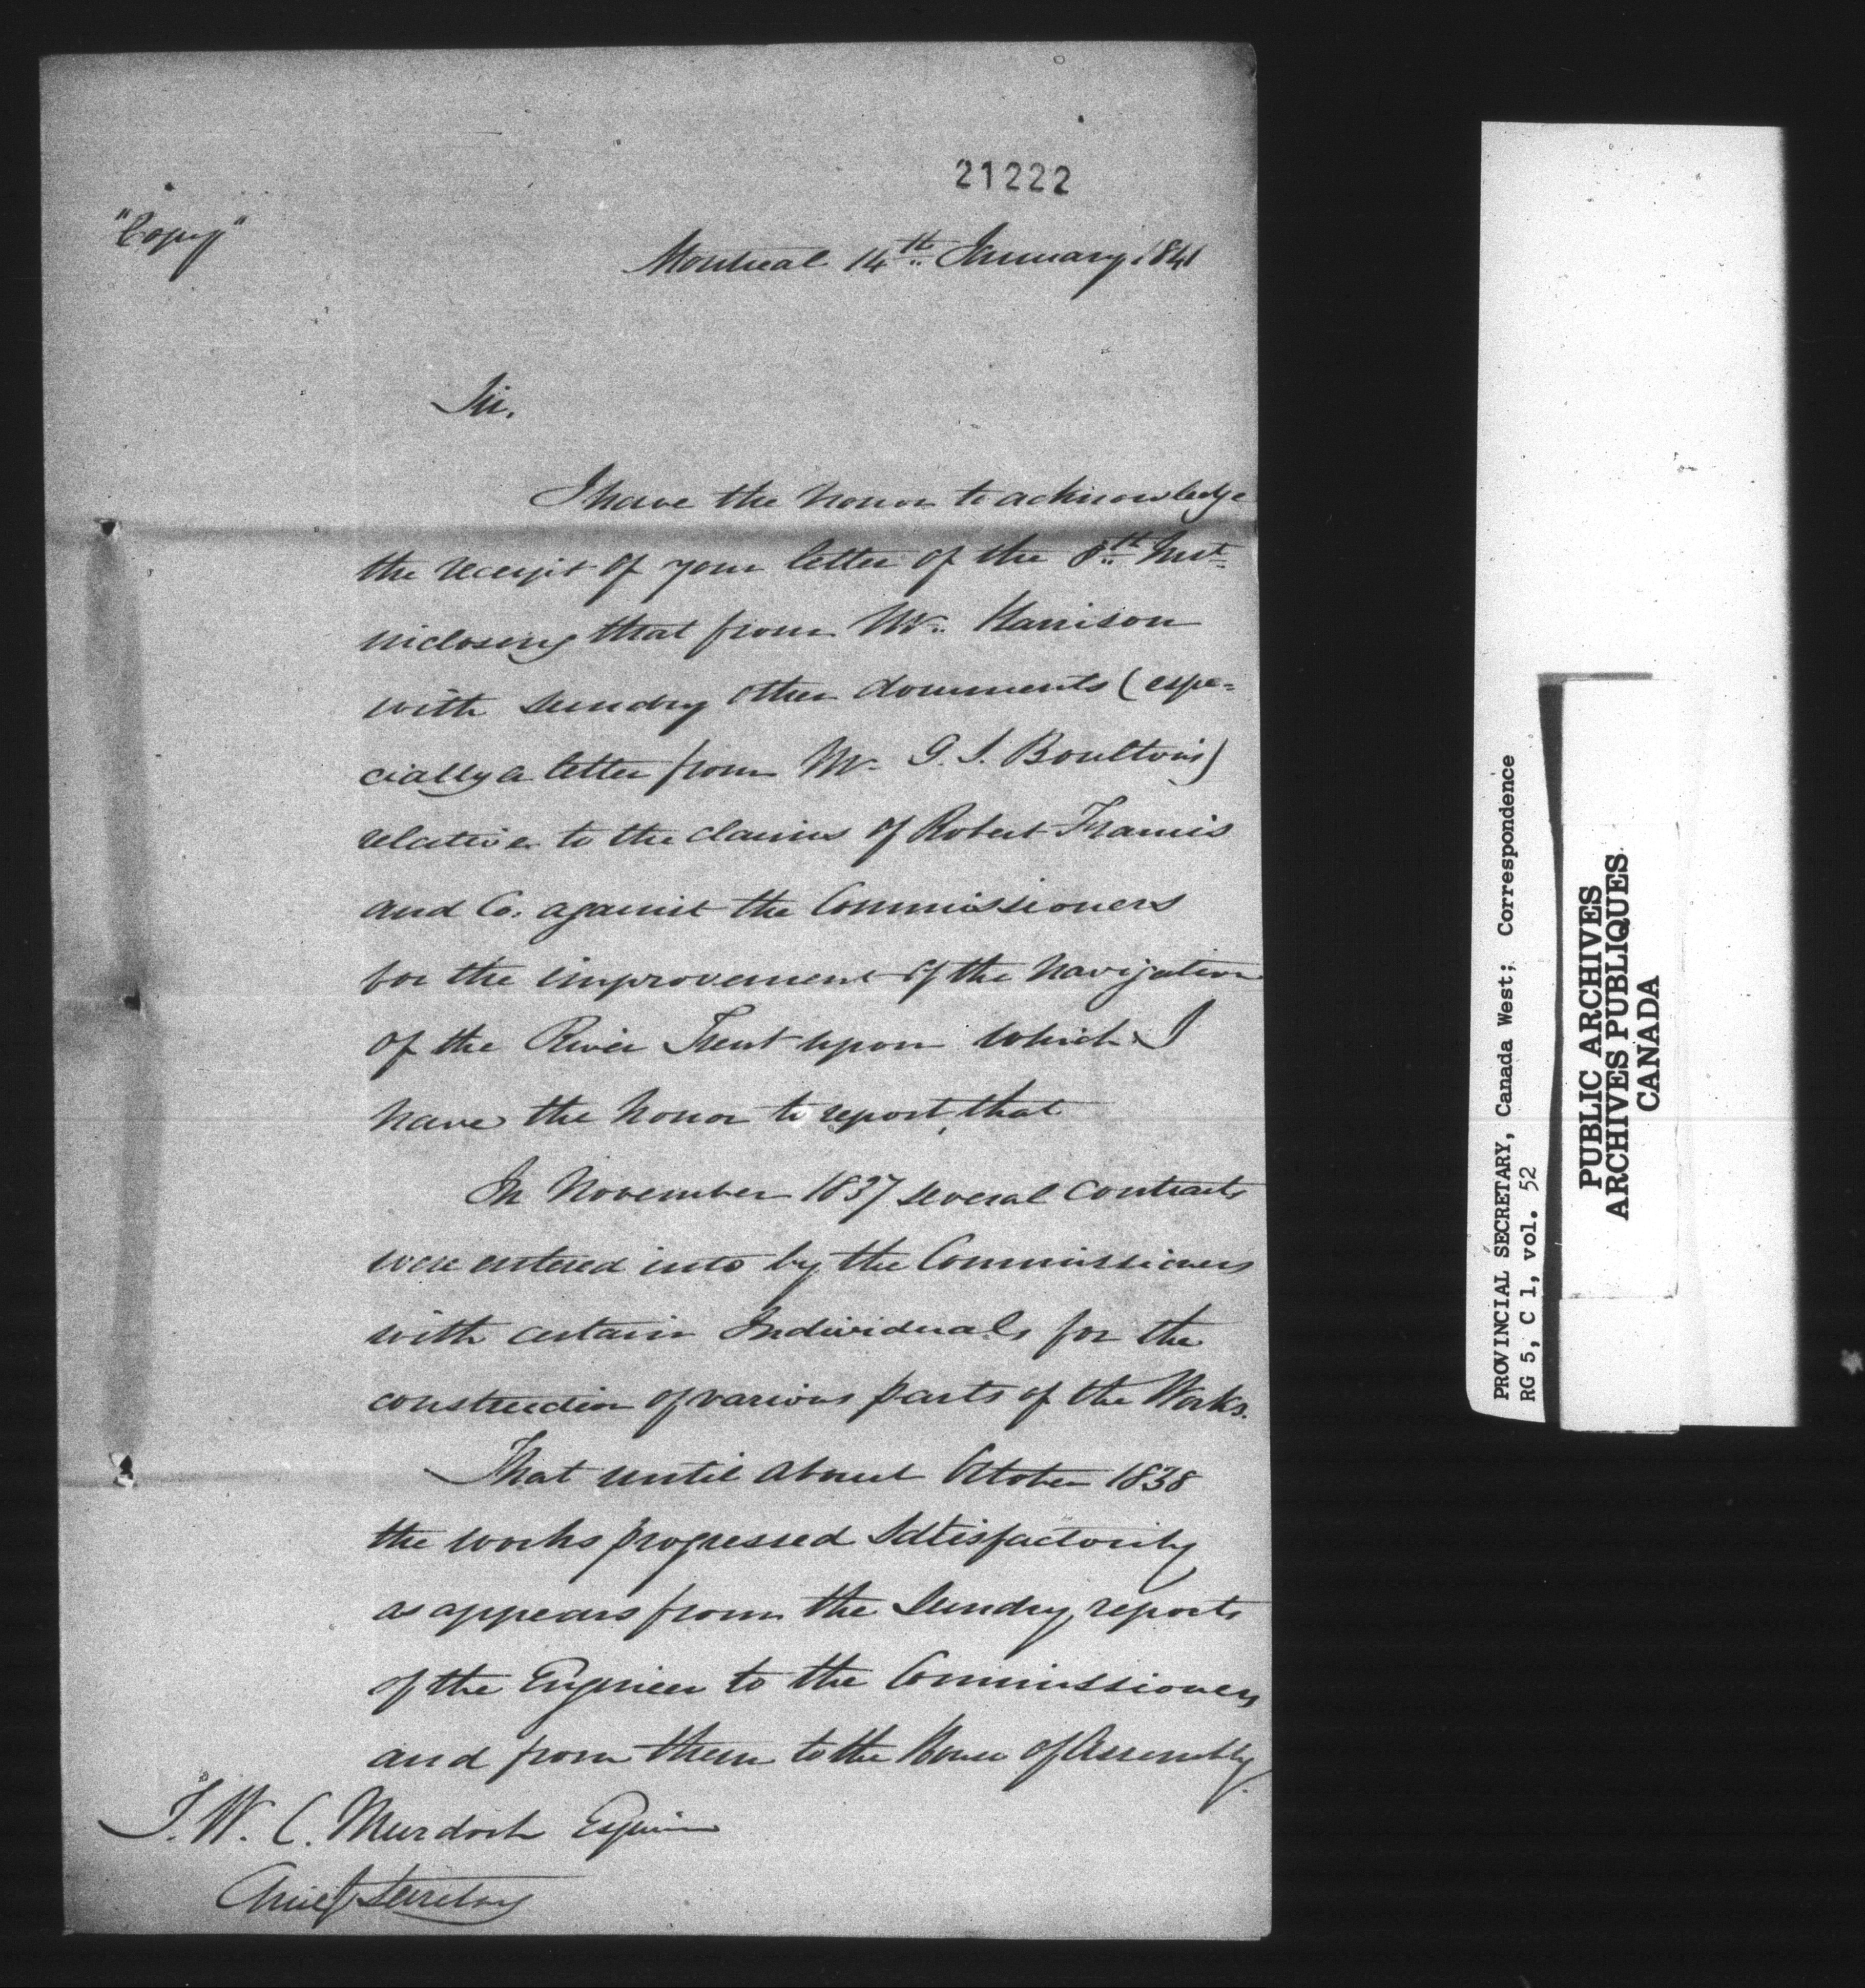 21222
"Copy"
Montreal 14th January 1841
Sir.
I have the honor to acknowledge
the receipt of your letter of the 8th Inst
inclosing that from Mr. Harrison
with sundry other documents (espe=
cially a letter from Mr. G. S. Boulton's)
relative to the claims of Robert Francis
and Co. against the Commissioners
for the improvement of the Navigation
of the River Trent upon which I
have the honor to report, that
In November 1837 several contracts
were entered into by the Commissioners
with certain Individuals for the
construction of various parts of the Works.
That until about October 1838
the works progressed satisfactorily
as appears from the sundry reports
of the Engineer to the Commissioners
and from them to the House of Assembly.
T. W. C. Murdoch Esquire
Chief Secretary
PROVINCIAL SECRETARY, Canada West; Correspondence
RG 5, C 1, vol. 52
PUBLIC ARCHIVES
ARCHIVES PUBLIQUES
CANADA